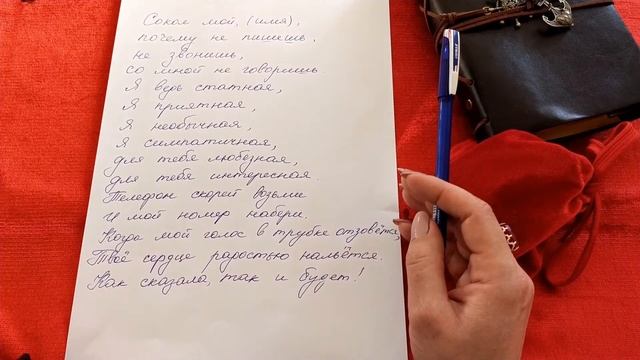 Сокол мой, (имя),
почему не пишешь,
не звонишь,
со мной не говоришь.
Я ведь статная,
Я приятная,
Я необычная,
Я симпатичная,
для тебя любезная,
для тебя интересная.
Телефон скорей возьми
И мой номер набери.
Когда мой голос в трубке отзовётся,
Твоё сердце радостью нальётся.
Как сказала, так и будет!